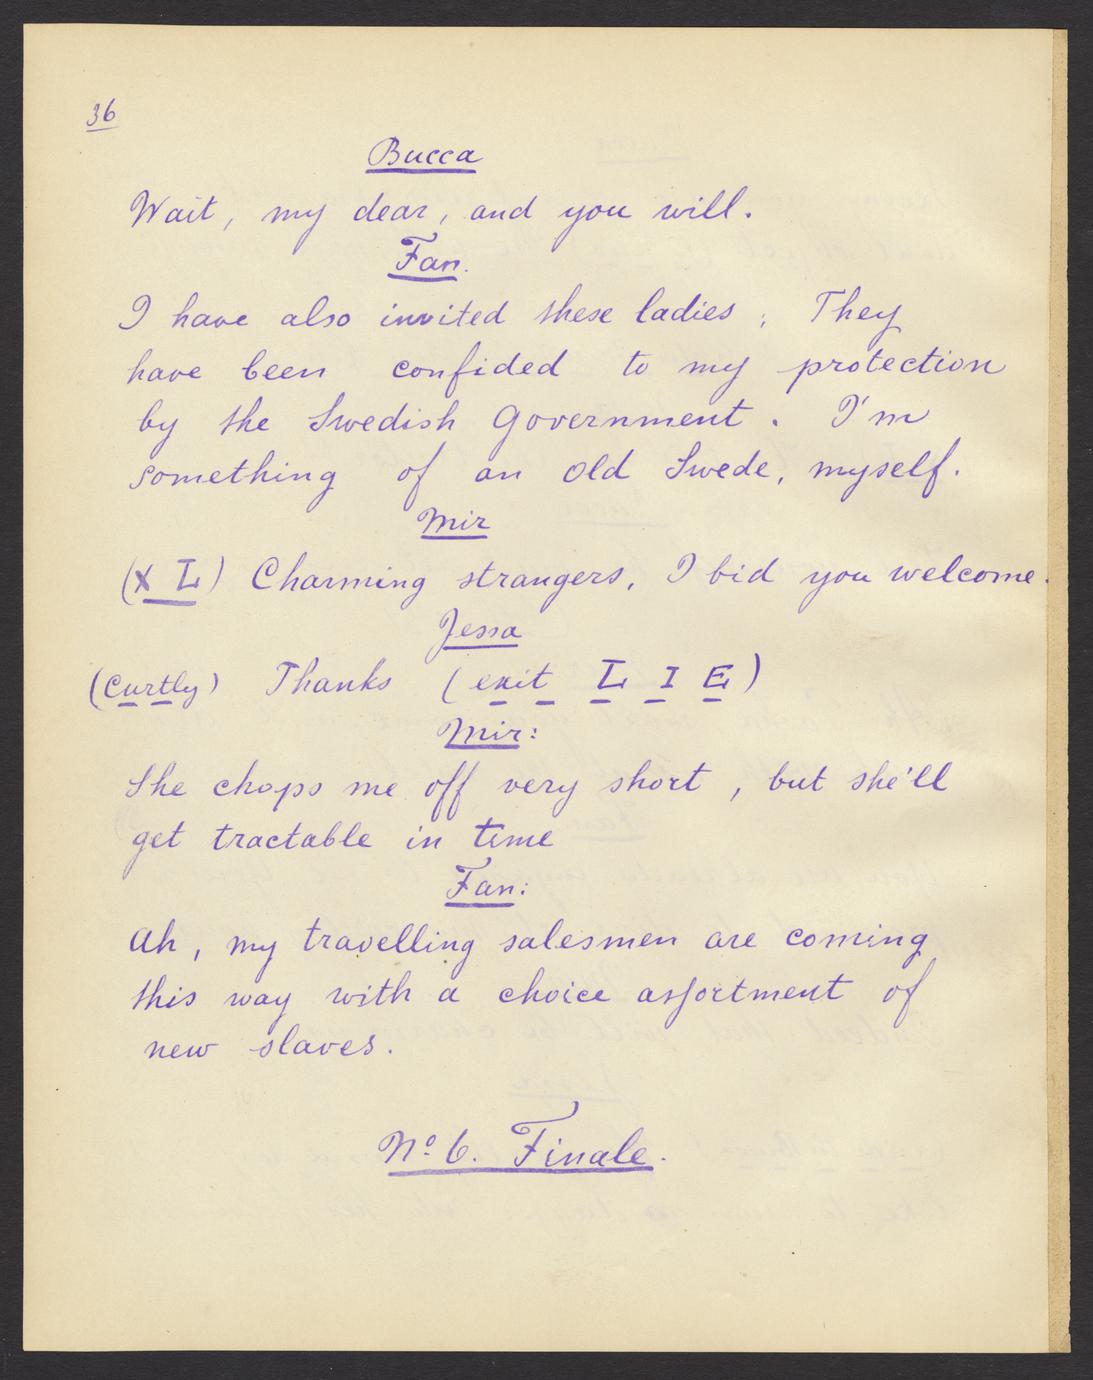 36
Bucca
Wait, my dear, and you will.
Fan.
I have also invited these ladies; They
have been confided to my protection
by the Swedish Government. I'm
something of an old Swede, myself.
Mir
(X L) Charming strangers, I bid you welcome.
Jessa
(Curtly) Thanks (exit L I E)
Mir:
She chops me off very short, but she'll
get tractable in time
Fan:
Ah, my travelling salesmen are coming
this way with a choice assortment of
new slaves.
No 6. Finale.